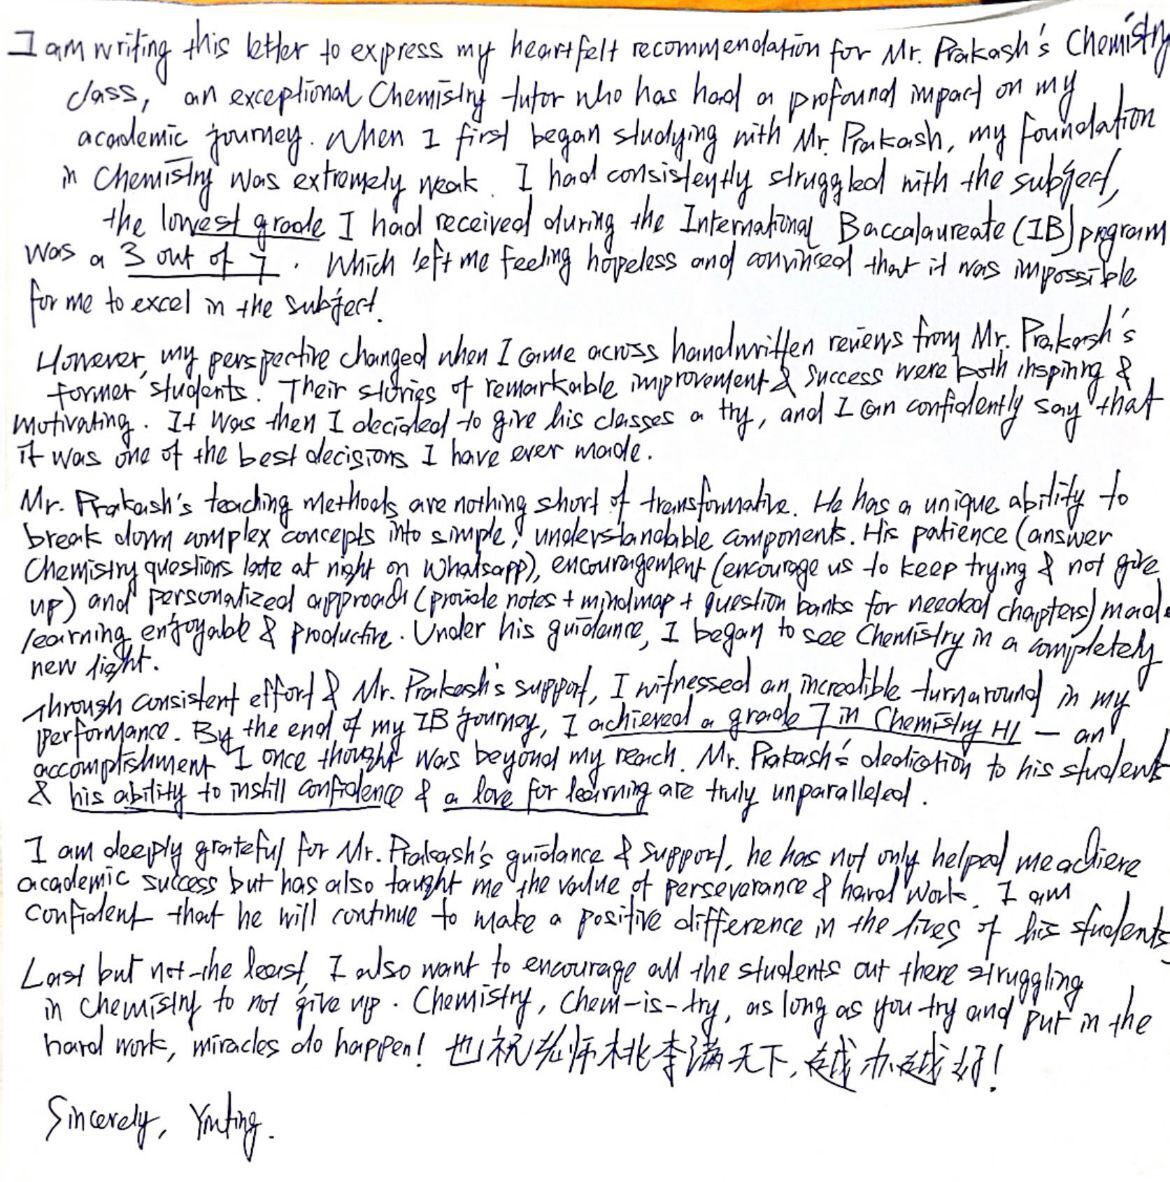 I am writing this letter to express my heartfelt recommendation for Mr. Prakash's Chemistry
class, an exceptional Chemistry tutor who has had a profound impact on my
academic journey. When I first began studying with Mr. Prakash, my foundation
in Chemistry was extremely weak. I had consistently struggled with the subject,
the lowest grade I had received during the International Baccalaureate (IB) program
was a 3 out of 7. Which left me feeling hopeless and convinced that it was impossible
for me to excel in the subject.
However, my perspective changed when I came across handwritten reviews from Mr. Prakash's
former students. Their stories of remarkable improvement & success were both inspiring &
motivating. It was then I decided to give his classes a try, and I can confidently say that
it was one of the best decisions I have ever made.
Mr. Prakash's teaching methods are nothing short of transformative. He has a unique ability to
break down complex concepts into simple, understandable components. His patience (answer
Chemistry questions late at night on Whatsapp), encouragement (encourage us to keep trying & not give
up) and personalized approach (provide notes + mindmap + question banks for needed chapters) made
learning enjoyable & productive. Under his guidance, I began to see Chemistry in a completely
new light.
Through consistent effort & Mr. Prakash's support, I witnessed an incredible turnaround in my
performance. By the end of my IB journey, I achieved a grade 7 in Chemistry Hl — an
accomplishment I once thought was beyond my reach. Mr. Prakash's dedication to his students
& his ability to instill confidence & a love for learning are truly unparalleled.
I am deeply grateful for Mr. Prakash's guidance & support, he has not only helped me achieve
academic success but has also taught me the value of perseverance & hard work. I am
confident that he will continue to make a positive difference in the lives of his students
Last but not the least, I also want to encourage all the students out there struggling
in chemistry to not give up. Chemistry, Chem-is-try, as long as you try and put in the
hard work, miracles do happen! 也祝老师桃李满天下,越办越好!
Sincerely, Yuting.